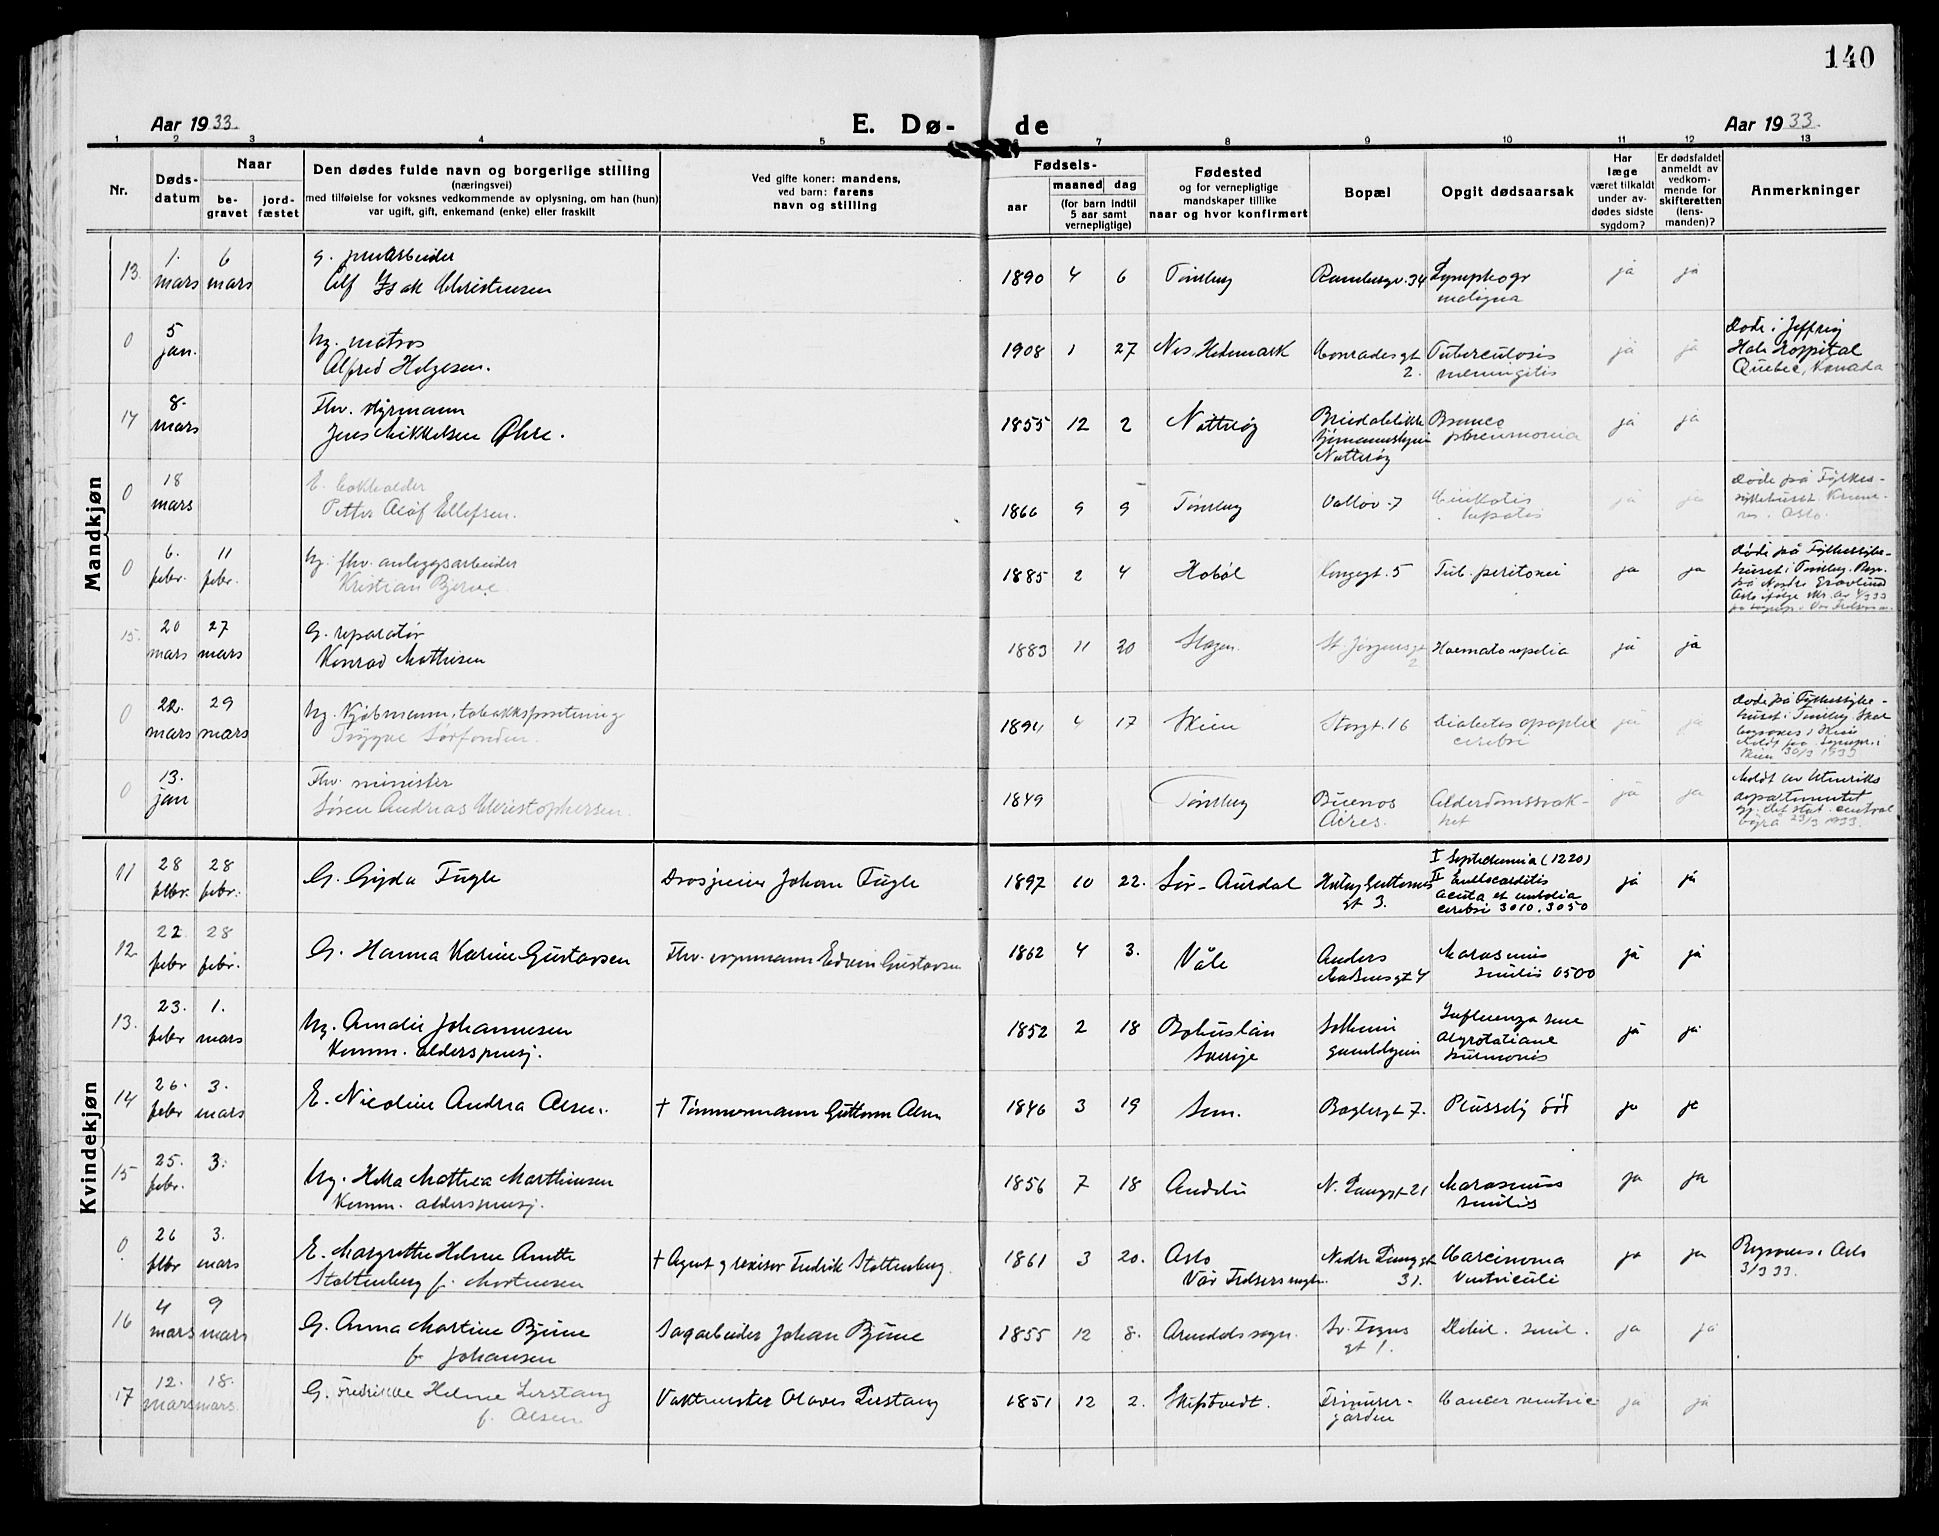 140
Aar 1933.
E. Dø-
de
Aar 1933.
1 2 3 4 5 6 7 8 9 10 11 12 13
Nr.
Døds-
datum
Naar
be-
gravet
jord-
fæstet
Den dødes fulde navn og borgerlige stilling
(næringsvei)
med tilføielse for voksnes vedkommende av oplysning, om han (hun)
var ugift, gift, enkemand (enke) eller fraskilt
Ved gifte koner: mandens,
ved barn: farens
navn og stilling
Fødsels-
aar
maaned
dag
(for barn indtil
5 aar samt
vernepligtige)
Fødested
og for vernepligtige
mandskaper tillike
naar og hvor konfirmert
Bopæl
Opgit dødsaarsak
Har
læge
været tilkaldt
under av-
dødes sidste
sygdom?
Er dødsfaldet
anmeldt av
vedkom-
mende for
skifteretten
(lens-
manden)?
Anmerkninger
Mandkjøn
13. 1. mars 6 mars
Alf Isak Christensen
1890 4 6 Tønsberg 34 Lymphogr
maligna
ja ja
0 5 jan.
Ug. matros
Alfred Helgesen.
1908 1 27 Nes, Hedemark Conradesgt
2.
Tuberculosis
meningitis
ja ja
Døde i Jeffrey
Hale Hospital
Quebec, Kanada
14 8. mars
Fhv. styrmann
Jens Mikkelsen Øhre.
1855 12 2 Nøtterøy
Nøtterøy
Bronco
pneumonia
ja ja
0 18 mars
E. bokholder
Petter Olaf Ellefsen.
1866 9 9 Tønsberg Valløv. 7
hepatis
ja ja
Døde på Fylkes-
sykehuset.
0 6. febr. 11 febr.
Ug. fhv. anleggsarbeider
Kristian Bjerve
1885 2 4 Hobøl Kongegt. 5 Tub. peritonei ja ja
Døde på Fylkessyke-
huset i Tønsberg.
15. 20 mars 27 mars
G. reparatør
Konrad Mathisen
1883 11 20 Slagen. St. Jørgensgt
2
ja ja
0 22. mars 29 mars
Ug. Kjøbmann, tobakksforretning
Trygve Sørfonden.
1894 4 17 Skien Storgt. 16 Diabetes apoplex
cerebri
ja ja
Døde på Fylkessyke-
huset i Tønsberg. Skal
begraves i Skien
Skien 30/3 1933
0 13. jan
Fhv. minister
Søren Andreas Christophersen.
1849 Tønsberg Buenos
Aires.
Alderdomssvak-
het
ja ja
Meldt av Utenriks
departementet
gj. det stat. sentral
byrå 23/3 1933.
Kvindekjøn
11 28 febr. 28 febr.
G. Gyda Fugle
Drosjeeier Johan Fugle
1897 10 22. Sør-Aurdal
gt 3.
I Septicemia (1220)
II Endocarditis
acuta et embolia
cerebri 3010. 3050
ja ja
12 22. febr 28 febr.
G. Hanna Karine Gustavsen
Fhv. vognmann Edvin Gustavsen
1862 4 3. Våle Anders
Madsensgt 4
Marasmus
senilis 0500
ja ja
13. 23. febr 1. mars
Ug. Amalie Johannesen
Komm. alderspensj.
1852 2 18 Bohuslän
Sverige
Solheim
gamlehjem
Influenza sine
Aegrotatione
pulmonis
ja ja
14 26. febr 3. mars
E. Nicoline Andrea Olsen.
+ Tømmermann Guttorm Olsen
1846 3 19 Sem. Baglergt 7. Plusselig død ja ja
15 25. febr. 3.
Ug. Hella Mathea Marthinsen
Komm. alderspensj.
1856 7 18 Andebu N. Langgt 21 Marasmus
senilis
ja ja
0 26 febr 3. mars
E. Margrethe Helene Anette
Stoltenberg f. Mortensen
+ Agent og revisor Fredrik Stoltenberg.
1861 3 20. Oslo
Vår Frelsers mgh.
Nedre Langgt
31.
Carcinoma
ventriculi
ja ja
Begraves i Oslo
3/3 33.
16 4 mars 9 mars
G. Anna Martine Bjune
f. Johansen
Sagarbeider Johan Bjune
1855 12 8. Arendals sogn. Sv. Foyns
gt 1.
Debil. senil. ja ja
17 12. mars 18. mars.
G. Fredrikke Helene Lerstang
f. Olsen
Vaktmester Olaves Lerstang
1851 12 2. Skiptvedt. Frimurer-
gården
Cancer ventric ja ja